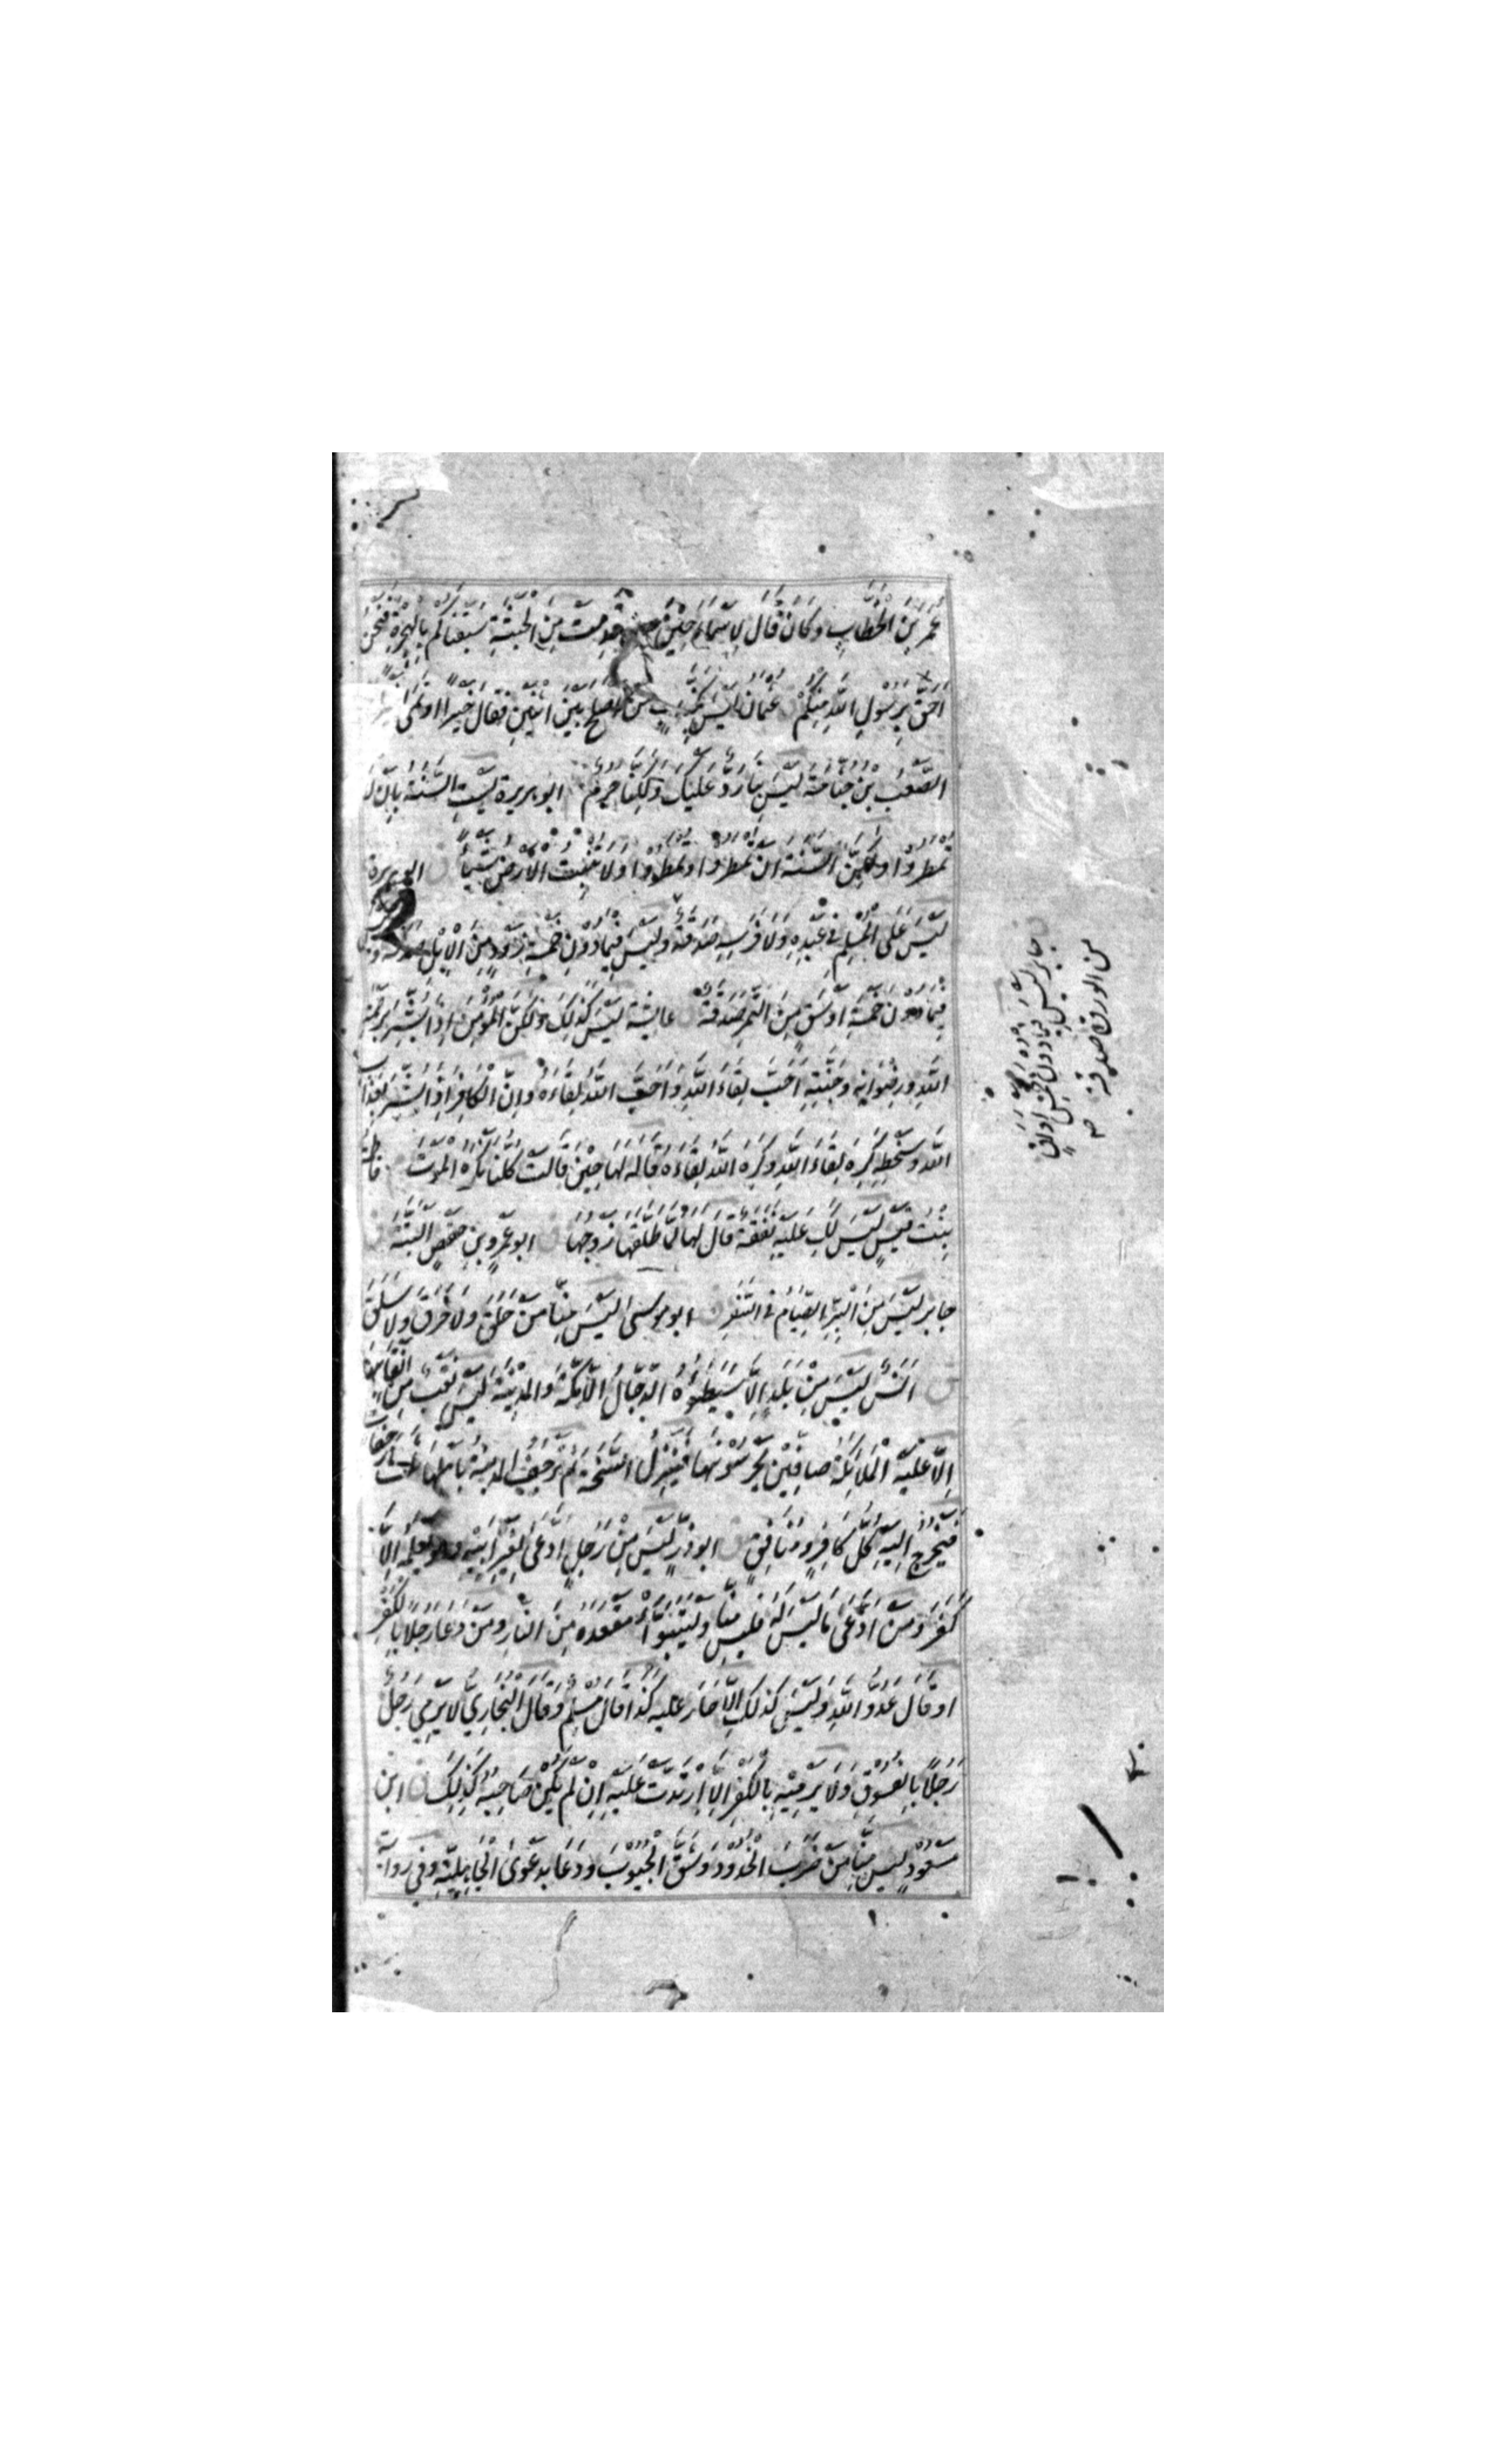 عُمَرَ بْنَ الْخَطَّابِ وَكَانَ قَالَ لِأَسْمَاءَ حِيْنَ قَدِمَتْ مِنَ الْحَبَشَةِ سَبَقْنَاكُمْ بِالْهِجْرَةِ فَنَحْنُ
اَحَقُّ بِرَسُوْلِ اللّٰهِ مِنْكُمْ عثمان لَيْسَ بِكَذَّابٍ مَنْ اَصْلَحَ بَيْنَ اثْنَيْنِ فَقَالَ خَيْرًا اَوْ نَمٰى
الصَّعْبُ بْنُ جَثَّامَةَ لَيْسَ بِنَا رَدٌّ عَلَيْكَ وَلٰكِنَّا حُرُمٌ ابو هريرة لَيْسَتِ السَّنَةُ بِاَنْ لَا
تُمْطَرُوْا وَلٰكِنَّ السَّنَةَ اَنْ تُمْطَرُوْا وَتُمْطَرُوْا وَلَا تُنْبِتُ الْاَرْضُ شَيْئًا ابو هريرة
لَيْسَ عَلَى الْمُسْلِمِ فِي عَبْدِهِ وَلَا فَرَسِهِ صَدَقَةٌ وَلَيْسَ فِيْمَا دُوْنَ خَمْسَةِ ذَوْدٍ مِنَ الْاِبِلِ صَدَقَةٌ
فِيْمَا دُوْنَ خَمْسَةِ اَوْسُقٍ مِنَ التَّمْرِ صَدَقَةٌ عائشة لَيْسَ كَذٰلِكَ وَلٰكِنَّ الْمُؤْمِنَ اِذَا بُشِّرَ بِرَحْمَةِ
اللّٰهِ وَرِضْوَانِهِ وَجَنَّتِهِ اَحَبَّ لِقَاءَ اللّٰهِ وَاَحَبَّ اللّٰهُ لِقَاءَهُ وَاِنَّ الْكَافِرَ اِذَا بُشِّرَ بِعَذَابِ
اللّٰهِ وَسَخَطِهِ كَرِهَ لِقَاءَ اللّٰهِ وَكَرِهَ اللّٰهُ لِقَاءَهُ قَالَهُ لَهَا حِيْنَ قَالَتْ كُلُّنَا نَكْرَهُ الْمَوْتَ فاطمة
بِنْتُ قَيْسٍ لَيْسَ لَكِ عَلَيْهِ نَفَقَةٌ قَالَ لَهَا لَمَّا طَلَّقَهَا زَوْجُهَا ابو عَمْرِو بْنِ حَفْصٍ الْبَتَّةَ
جابر لَيْسَ مِنَ الْبِرِّ الصِّيَامُ فِي السَّفَرِ ابو موسى لَيْسَ مِنَّا مَنْ حَلَقَ وَلَا خَرَقَ وَلَا سَلَقَ
ق اَنَسٌ لَيْسَ مِنْ بَلَدٍ اِلَّا سَيَطَؤُهُ الدَّجَّالُ اِلَّا مَكَّةَ وَالْمَدِيْنَةَ لَيْسَ نَقْبٌ مِنْ اَنْقَابِهَا
اِلَّا عَلَيْهِ الْمَلَائِكَةُ صَافِّيْنَ يَحْرُسُوْنَهَا فَيَنْزِلُ السَّبَخَةَ ثُمَّ تَرْجُفُ الْمَدِيْنَةُ بِاَهْلِهَا ثَلٰثَ رَجَفَاتٍ
فَيَخْرُجُ اِلَيْهِ كُلُّ كَافِرٍ وَمُنَافِقٍ ق ابو ذرٍّ لَيْسَ مِنْ رَجُلٍ ادَّعٰى لِغَيْرِ اَبِيْهِ وَهُوَ يَعْلَمُهُ اِلَّا
كَفَرَ وَمَنِ ادَّعٰى مَا لَيْسَ لَهُ فَلَيْسَ مِنَّا وَلْيَتَبَوَّأْ مَقْعَدَهُ مِنَ النَّارِ وَمَنْ دَعَا رَجُلًا بِالْكُفْرِ
اَوْ قَالَ عَدُوَّ اللّٰهِ وَلَيْسَ كَذٰلِكَ اِلَّا حَارَ عَلَيْهِ كَذَا قَالَ مُسْلِمٌ وَقَالَ الْبُخَارِيُّ لَا يَرْمِيْ رَجُلٌ
رَجُلًا بِالْفُسُوْقِ وَلَا يَرْمِيْهِ بِالْكُفْرِ اِلَّا ارْتَدَّتْ عَلَيْهِ اِنْ لَمْ يَكُنْ صَاحِبُهُ كَذٰلِكَ ق ابن
مَسْعُوْدٍ لَيْسَ مِنَّا مَنْ ضَرَبَ الْخُدُوْدَ وَشَقَّ الْجُيُوْبَ وَدَعَا بِدَعْوَى الْجَاهِلِيَّةِ وَفِي رواية
جابر لَيْسَ فِيْمَا دُوْنَ خَمْسِ اَوَاقٍ
من الورق صدقة